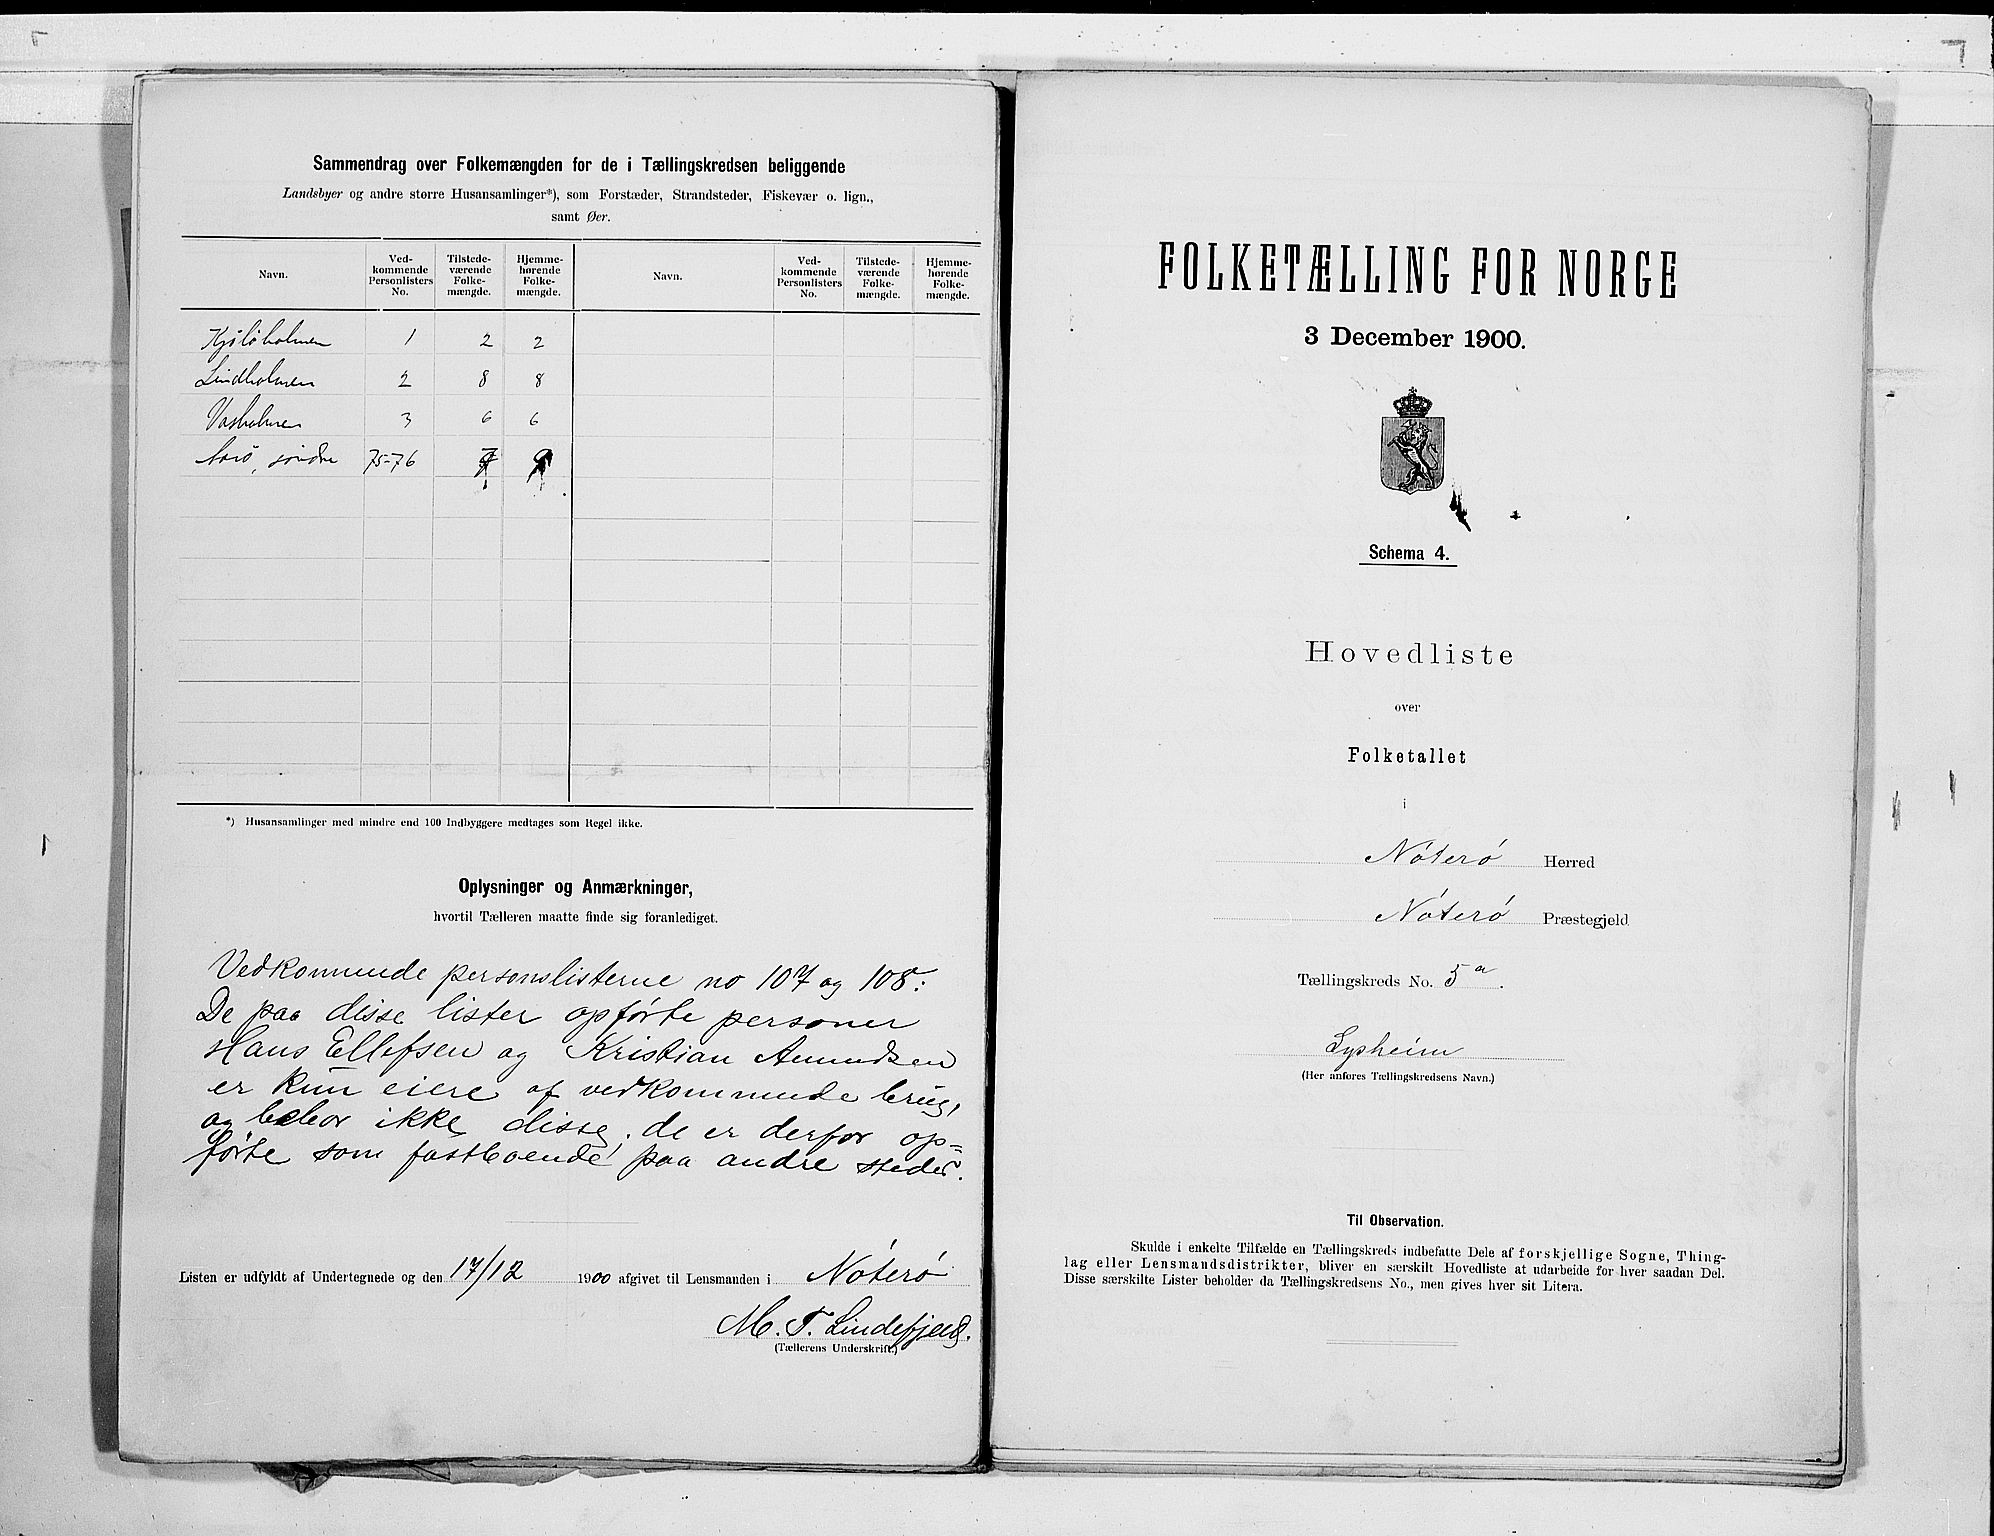 Sammendrag over Folkemængden for de i Tællingskredsen beliggende
Landsbyer og andre større Husansamlinger*), som Forstæder, Strandsteder, Fiskevær o. lign.,
samt Øer.
Navn. Ved-kommende Personlisters No. Tilstede-værende Folke-mængde. Hjemme-hørende Folke-mængde. Navn. Ved-kommende Personlisters No. Tilstede-værende Folke-mængde. Hjemme-hørende Folke-mængde.
Kjøløholmen 1 2 2
Lindholmen 2 8 8
Vasholmen 3 6 6
Aarø, søndre 75-76
*) Husansamlinger med mindre end 100 Indbyggere medtages som Regel ikke.
Oplysninger og Anmærkninger,
hvortil Tælleren maatte finde sig foranlediget.
Vedkommende personslisterne no 107 og 108:
De paa disse lister opførte personer
Hans Ellefsen og Kristian Amundsen
er kun eiere af vedkommende brug,
og bebor ikke disse; de er derfor op=
førte som fastboende paa andre steder.
Listen er udfyldt af Undertegnede og den 17/12 1900 afgivet til Lensmanden i Nøterø
M. T. Lindefjeld.
(Tællerens Underskrift.)
FOLKETÆLLING FOR NORGE
3 December 1900.
Schema 4.
Hovedliste
over
Folketallet
i
Nøterø Herred
Nøterø Præstegjeld
Tællingskreds No. 5a.
Lysheim
(Her anføres Tællingskredsens Navn.)
Til Observation.
Skulde i enkelte Tilfælde en Tællingskreds indbefatte Dele af forskjellige Sogne, Thing-
lag eller Lensmandsdistrikter, bliver en særskilt Hovedliste at udarbeide for hver saadan Del.
Disse særskilte Lister beholder da Tællingskredsens No., men gives hver sit Litera.